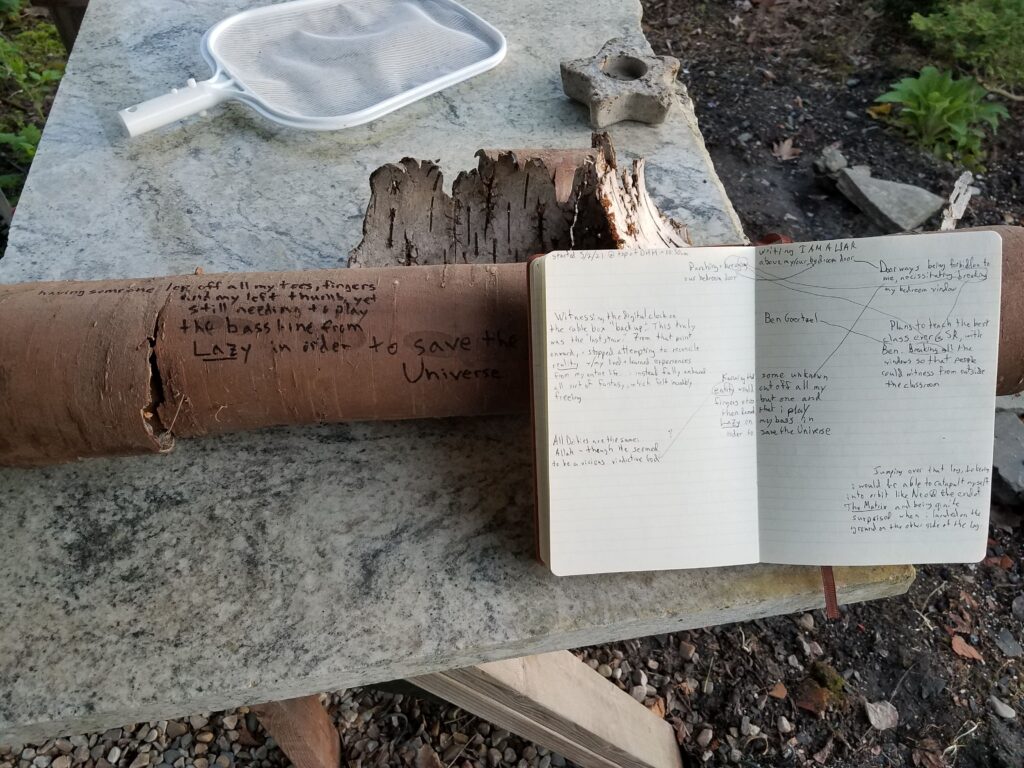 having someone lop off all my toes, fingers
and my left thumb, yet
still needing to play
the bass line from
Lazy in order to save the
Universe
started 5/2/21 @
our bedroom door
Witnessing the digital clock on
the cable box "back up". This truly
was the last straw. From that point
onward, i stopped attempting to reconcile
reality w/my lived + learned experiences
from my entire life. i instead fully embraced
all sort of fantasy, which felt incredibly
freeing.
All Deities are the same:
Allah - though He seemed
to be a vicious, vindictive God.
?
Knowing that some unknown
entity would cut off all my
fingers + toes but one and
then demand that i play
Lazy on my bass in
order to save the Universe
writing I AM A LIAR
above my/our bedroom door
Doorways being forbidden to
me, necessitating breaking
my bedroom window
Ben Goertzel
Plans to teach the best
class ever @ SR, with
Ben. Breaking all the
windows so that people
could witness from outside
the classroom
Jumping over that log, believing
i would be able to catapult myself
into orbit like Neo @ the end of
The Matrix and being quite
surprised when i landed on the
ground on the other side of the log.